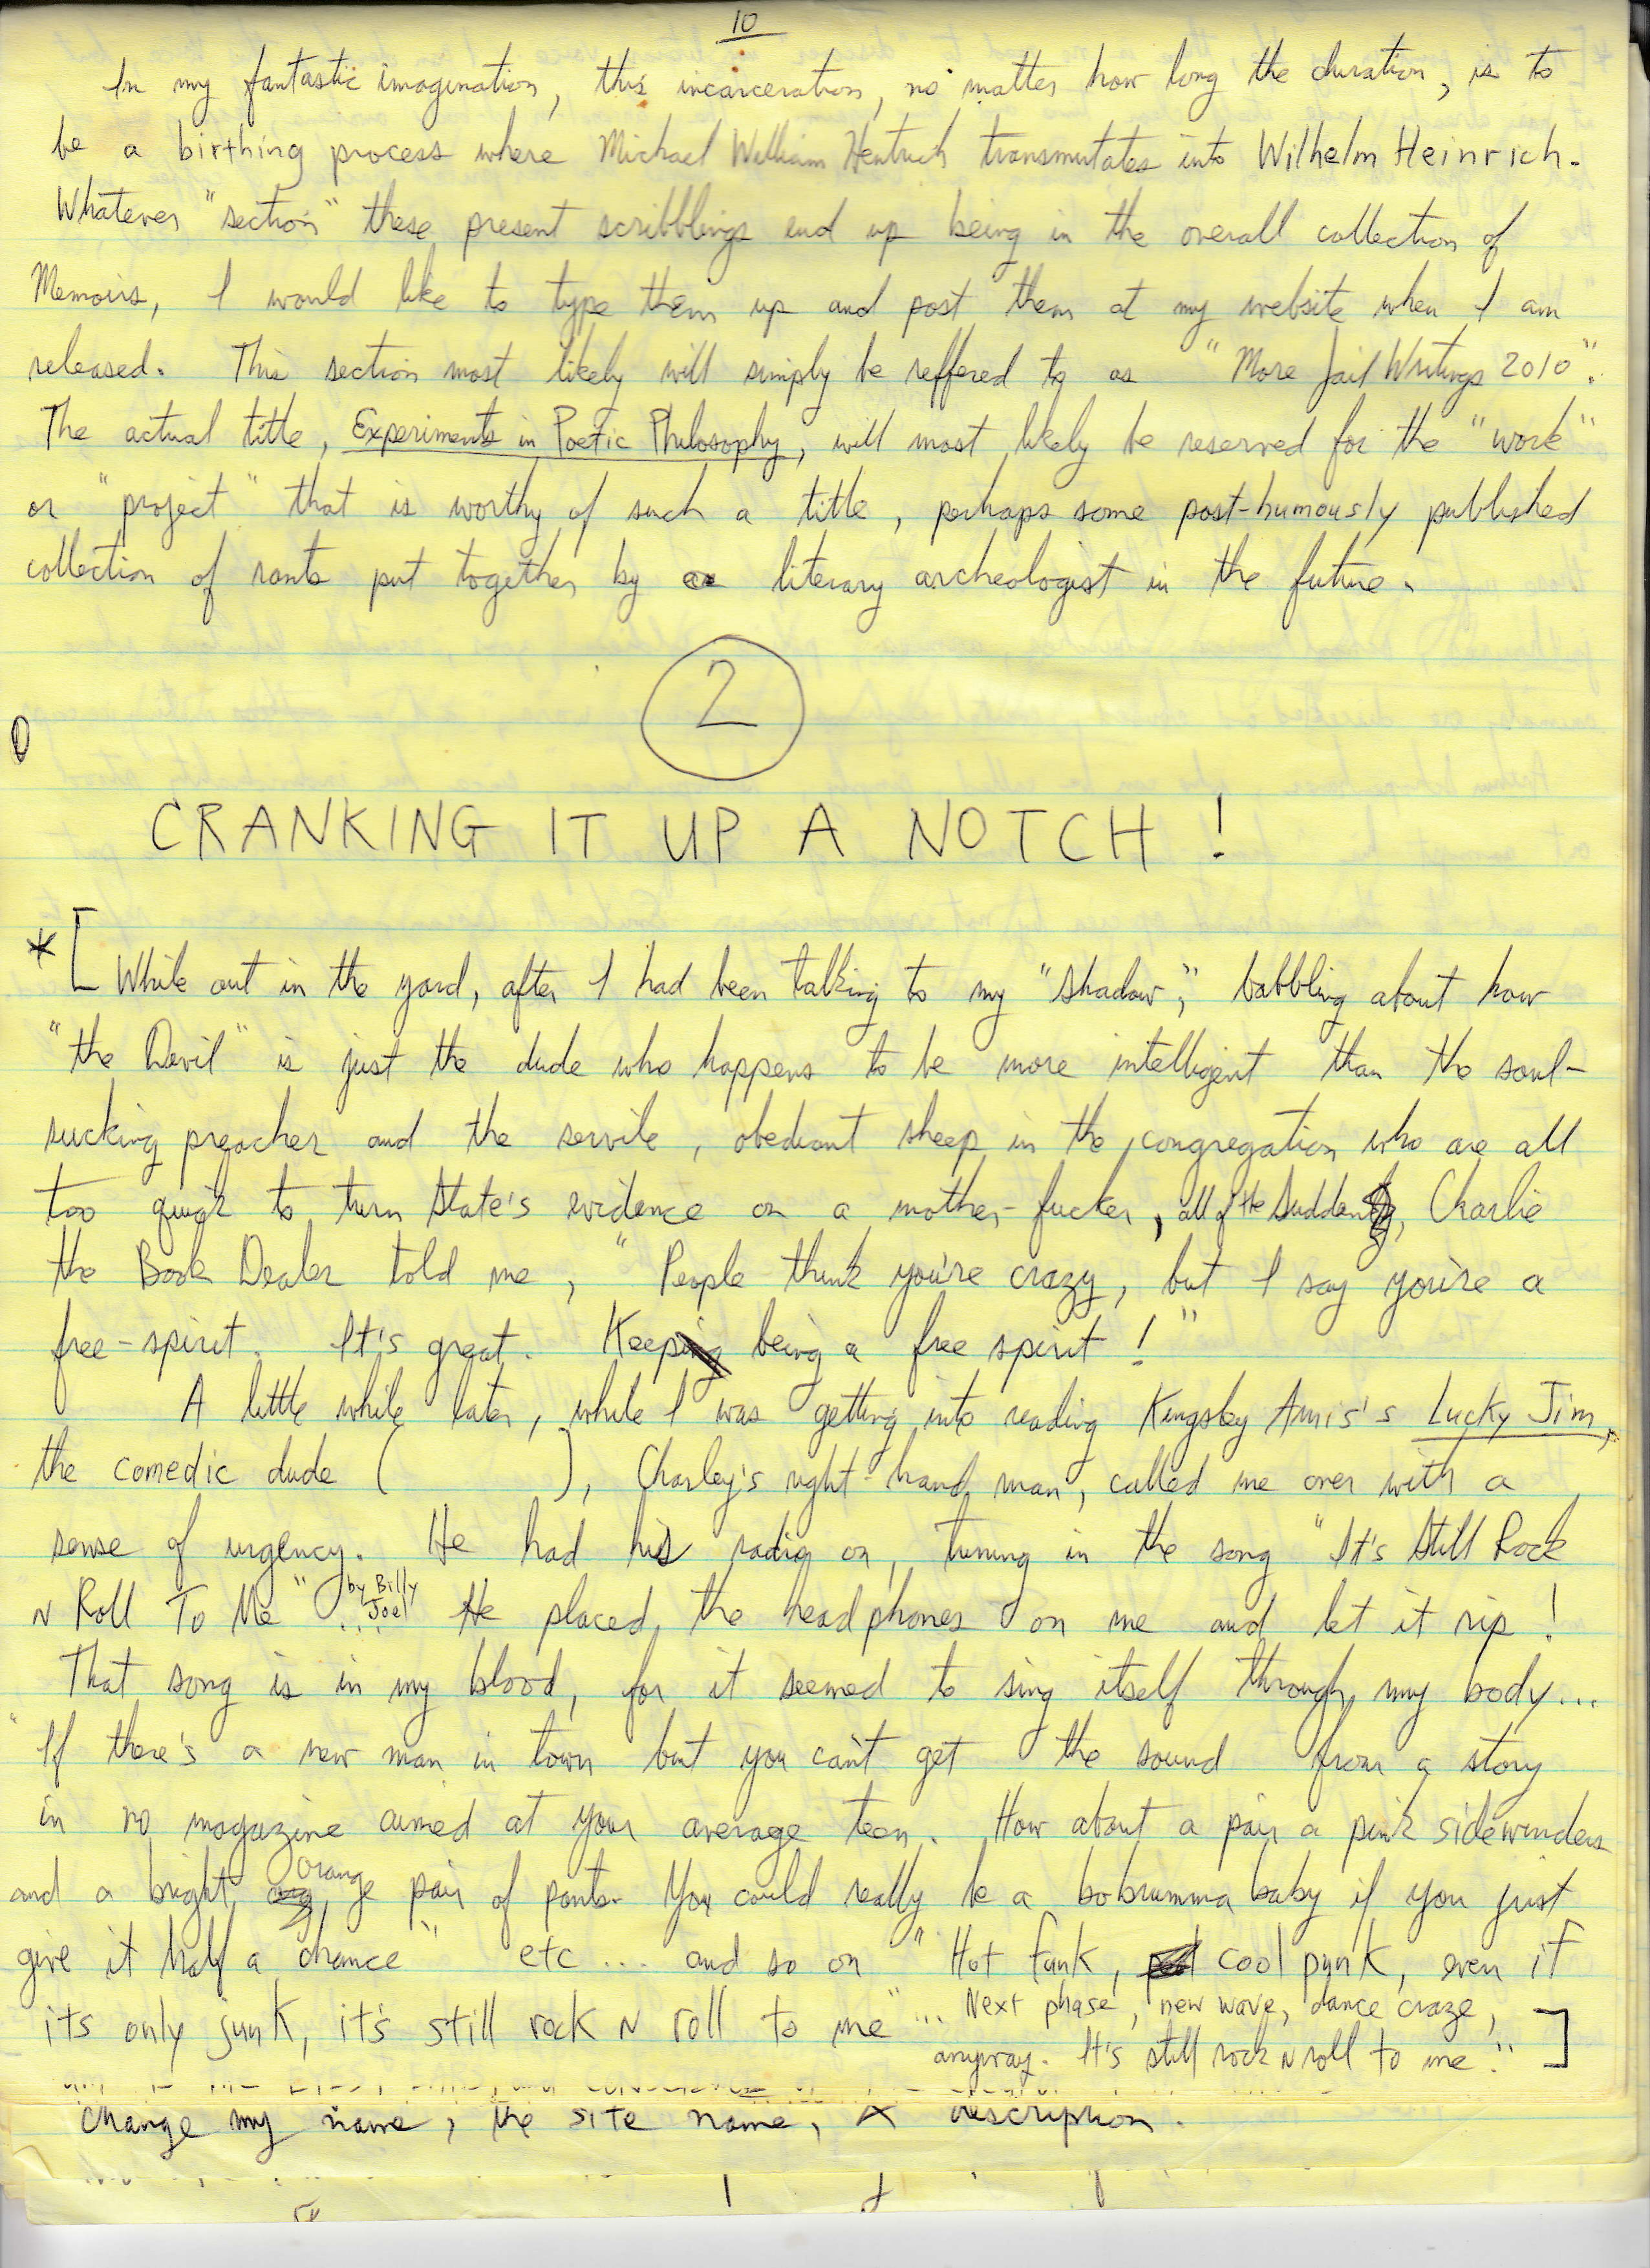 10
In my fantastic imagination, this incarceration, no matter how long the duration, is to
be a birthing process where Michael William Hentrich transmutates into Wilhelm Heinrich.
Whatever "section" these present scribblings end up being in the overall collection of
Memoirs, I would like to type them up and post them at my website when I am
released. This section most likely will simply be reffered to as "More Jail Writings 2010".
The actual title, Experiments in Poetic Philosophy, will most likely be reserved for the "work"
or "project" that is worthy of such a title, perhaps some post-humously published
collection of rants put together by a literary archeologist in the future.
2
CRANKING IT UP A NOTCH!
*[While out in the yard, after I had been talking to my "shadow", babbling about how
"the Devil" is just the dude who happens to be more intelligent than the soul-
sucking preacher and the servile, obediant sheep in the congregation who are all
too quick to turn State's evidence on a mother-fucker, all of the sudden, Charlie
the Book Dealer told me, "People think you're crazy, but I say you're a
free-spirit. It's great. Keep being a free spirit!"
A little while later, while I was getting into reading Kingsley Amis's Lucky Jim,
the comedic dude ( ), Charley's right-hand man, called me over with a
sense of urgency. He had his radio on, tuning in the song "It's Still Rock
N Roll To Me" by Billy Joel... He placed the headphones on me and let it rip!
That song is in my blood, for it seemed to sing itself through my body...
"If there's a new man in town but you can't get the sound from a story
in no magazine aimed at your average teen. How about a pair a pink sidewinders
and a bright orange pair of pants. You could really be a bobrumma baby if you just
give it half a chance" etc.... and so on "Hot funk, cool punk, even if
its only junk, it's still rock N roll to me"... Next phase, new wave, dance craze,
anyway. It's still rock N roll to me."]
change my name, the site name, & description.